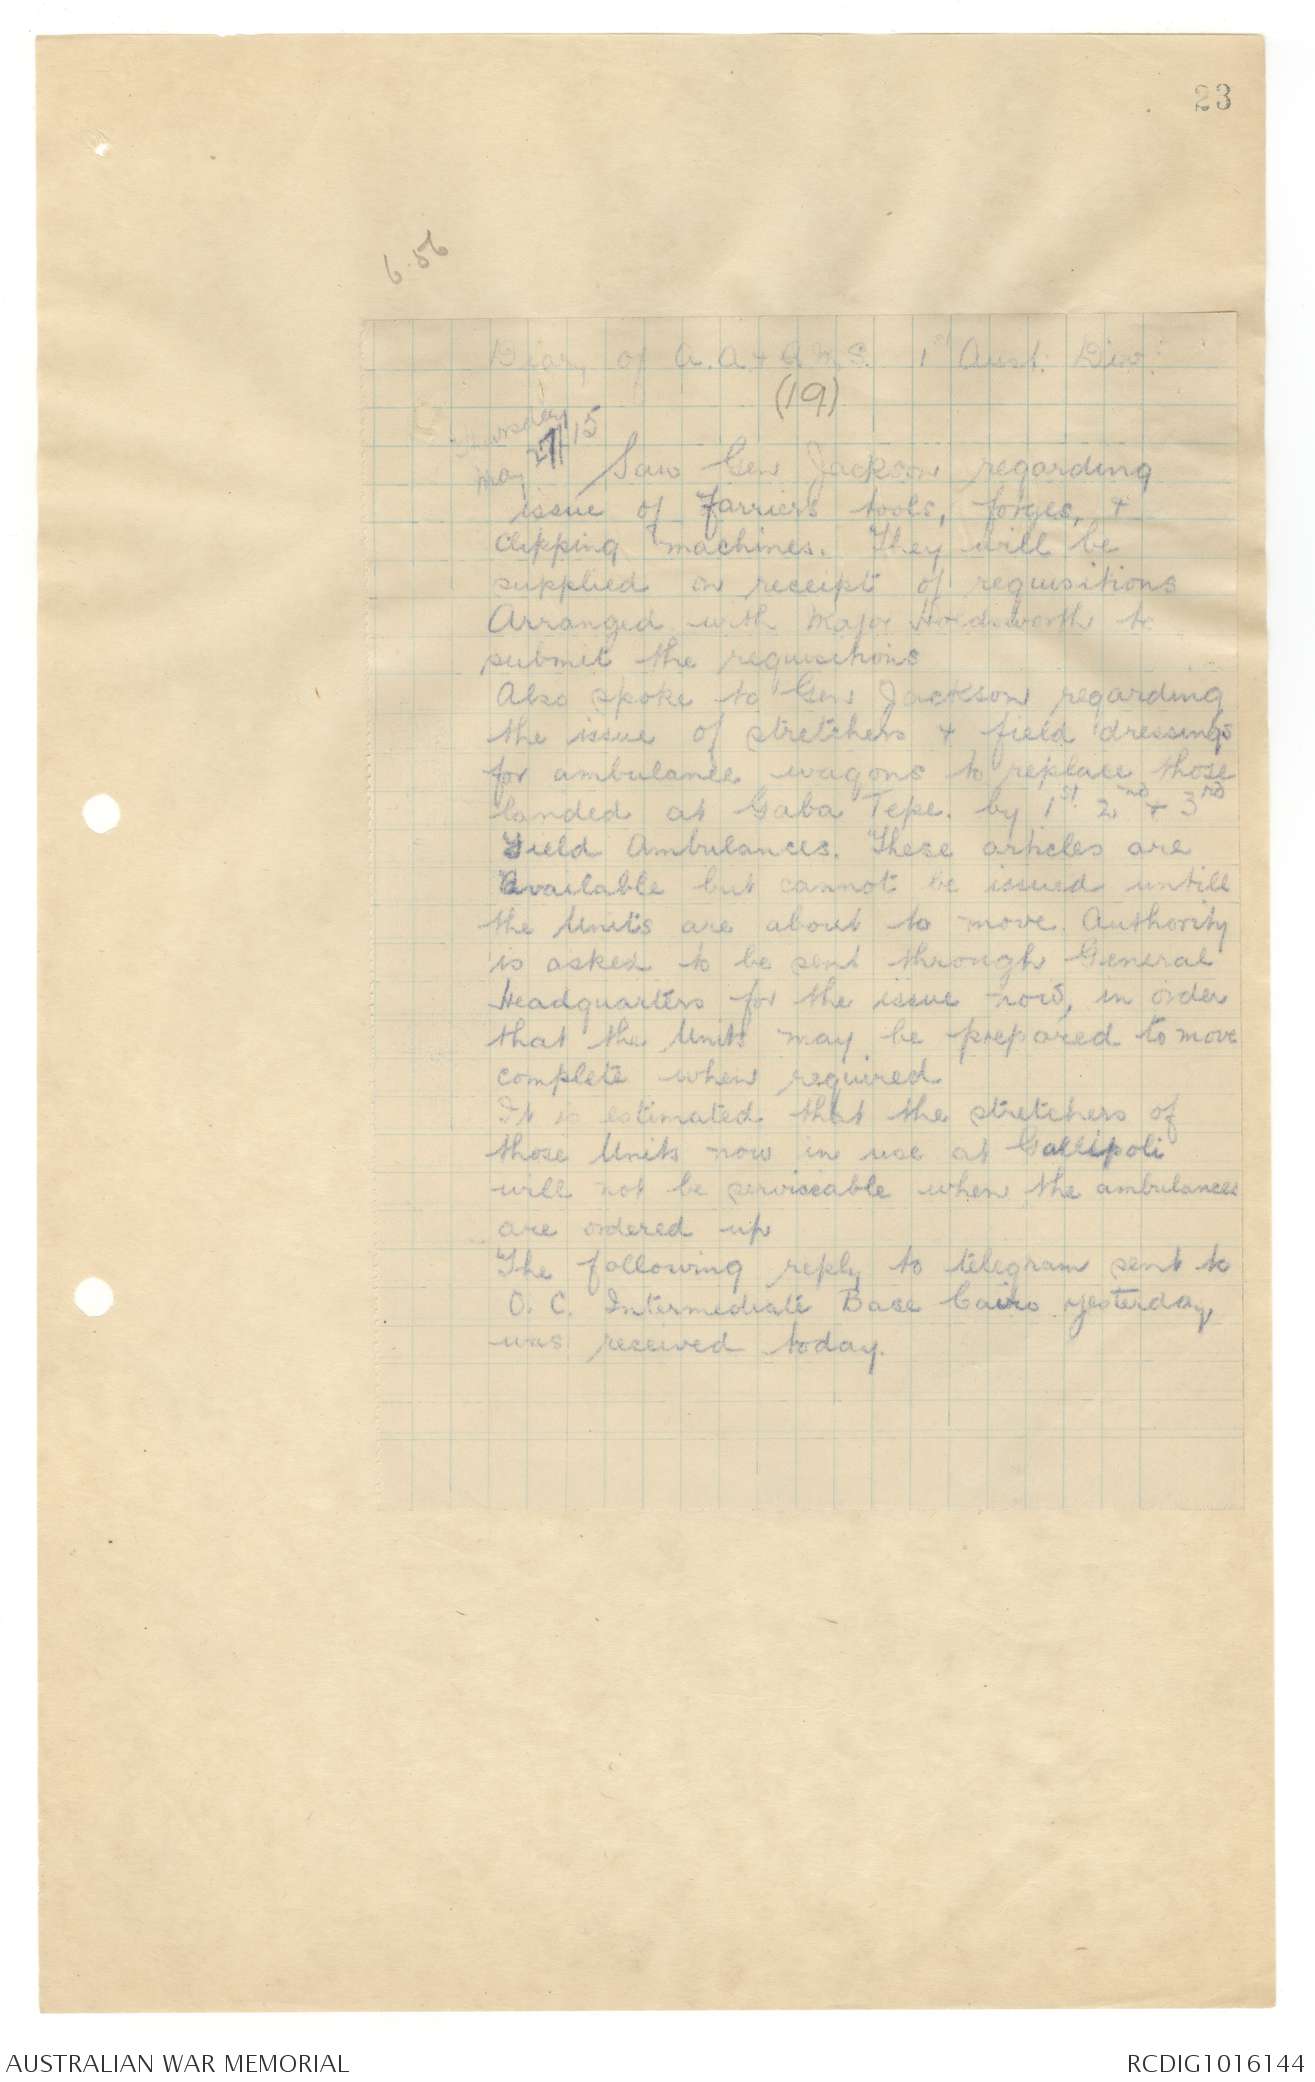 23
6.56
Diary of A.A & Q.M.G. 1st Aust. Div.
(19)
Thursday
May 27/15
Saw Gen Jackson regarding
issue of Farriers tools, forges, +
clipping machines. They will be
supplied on receipt of requisitions
Arranged with Major Holdsworth to
submit the requisitions
Also spoke to Gen Jackson regarding
the issue of stretchers + field dressings
for ambulance wagons to replace those
landed at Gaba Tepe. by 1st 2nd + 3rd
Field Ambulances. These articles are
available but cannot be issued untill
the Units are about to move. Authority
is asked to be sent through General
Headquarters for the issue now, in order
that the Units may be prepared to move
complete when required
It is estimated that the stretchers of
those Units now in use at Gallipoli
will not be serviceable when the ambulances
are ordered up
The following reply to telegram sent to
O. C. Intermediate Base Cairo yesterday,
was received today.
AUSTRALIAN WAR MEMORIAL
RCDIG1016144